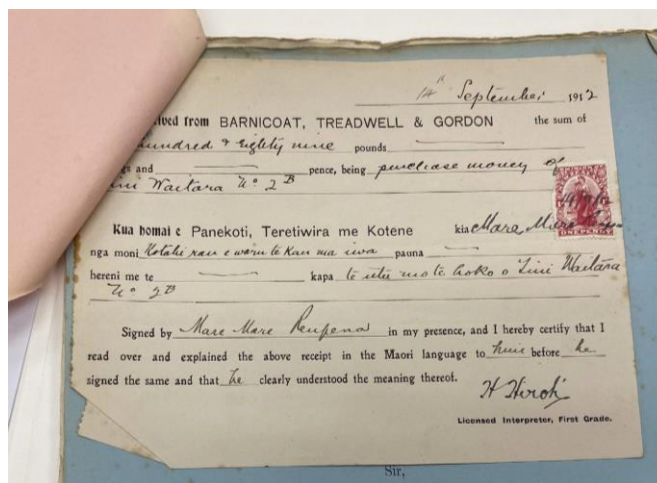 14th September 1912
ived from BARNICOAT, TREADWELL & GORDON the sum of
hundred & eighty nine pounds
gs and pence, being purchase money of
Waitara No 2B
Kua homai e Panekoti, Teretiwira me Kotene kia Mare Mare
nga moni Kotahi rau e waru te kau ma iwa pauna
hereni me te kapa te utu mo te hoko o Waitara
No 2B
Signed by Mare Mare in my presence, and I hereby certify that I
read over and explained the above receipt in the Maori language to him before he
signed the same and that he clearly understood the meaning thereof.
H Hiroti
Licensed Interpreter, First Grade.
ONE PENNY
Sir,